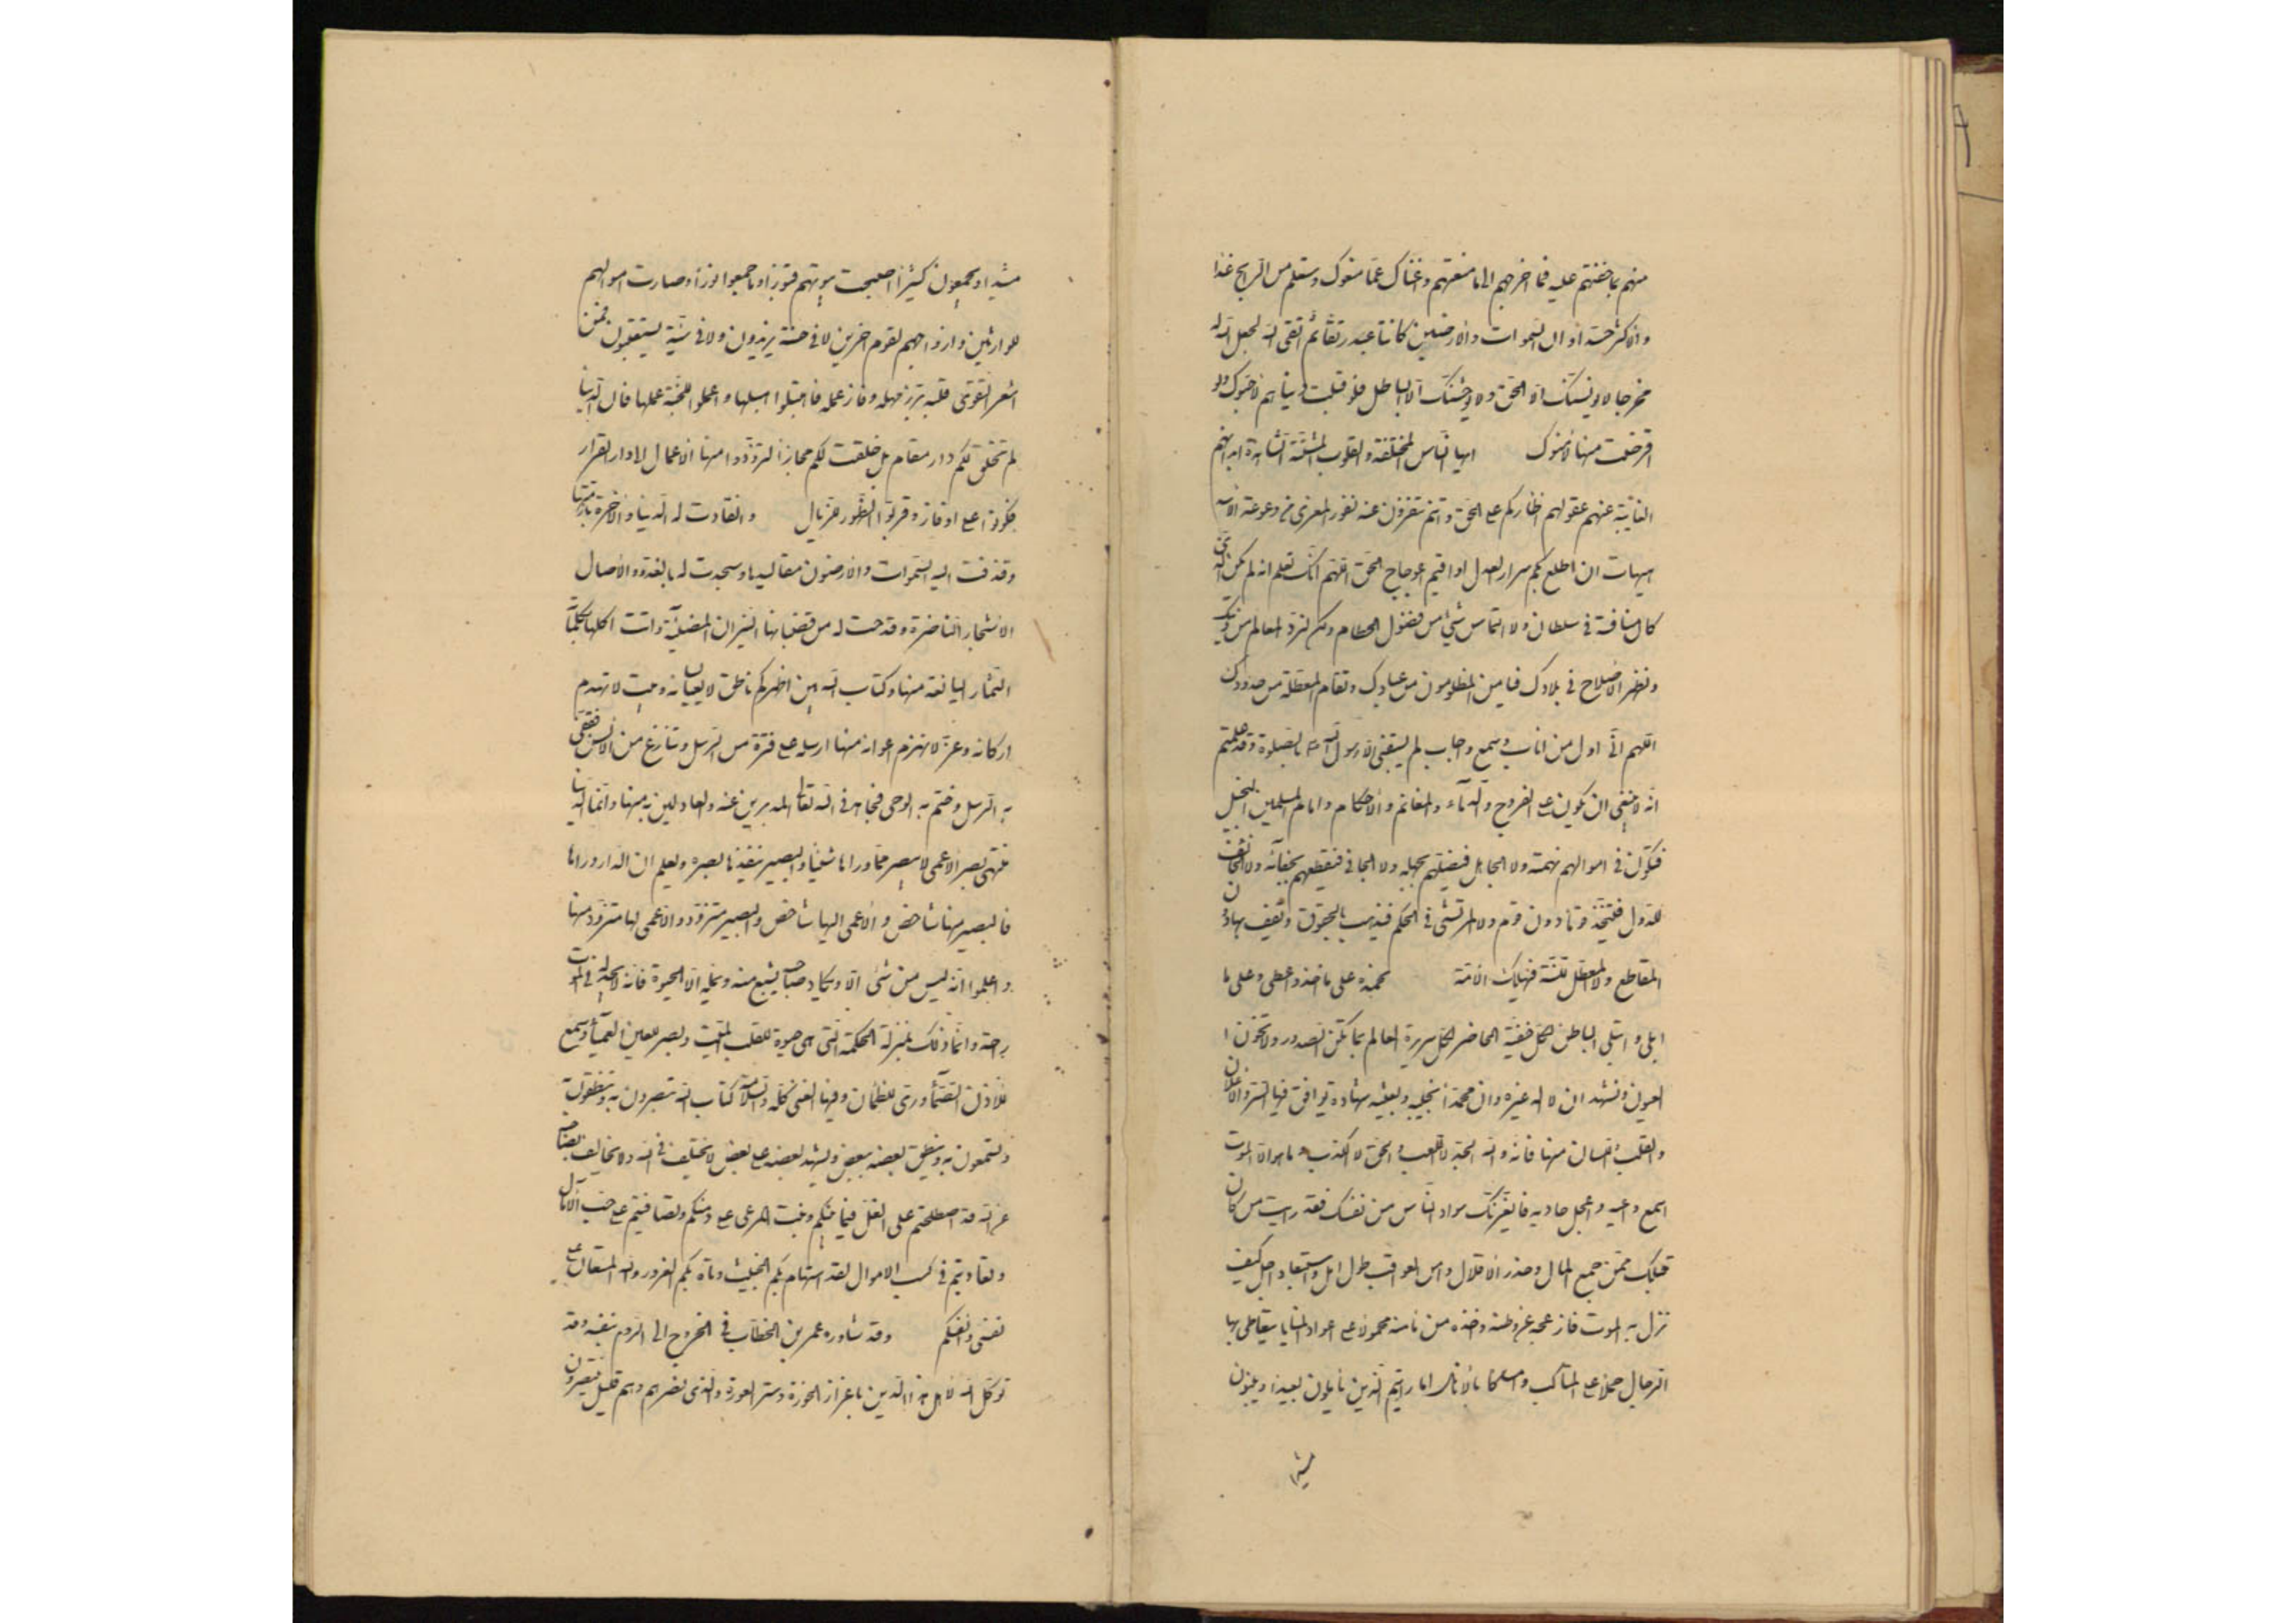 منهم بما خفتهم عليه فما احوجهم الى ما منعتهم وأغناك عمّا منعوك وستعلم من الرابح غدا
والاكثر حسدا ولو ان السموات والأرضين كانتا على عبد رتقا ثم اتقى الله لجعل الله له
مخرجا لا يونسنّك الا الحق ولا يوحشنّك الا الباطل فلو قبلت دنياهم لأحبّوك ولو
قرضت منها لأمنوك ايها الناس المختلفة والقلوب المتشتتة الشاهدة ابدانهم
الغائبة عنهم عقولهم اظاركم على الحق وانتم تنفرون عنه نفور المعزى من وعوعة الاسد
هيهات ان اطلع بكم سرار العدل او اقيم اعوجاج الحق اللهم انك تعلم انه لم يكن الذى
كان منافسة فى سلطان ولا التماس شئ من فضول الحطام ولكن لنرد المعالم من دينك
ونظهر الاصلاح فى بلادك فيأمن المظلومون من عبادك وتقام المعطلة من حدودك
اللهم انى اول من اناب وسمع واجاب لم يسبقنى الا رسول الله بالصلوة وقد علمتم
انه لا ينبغى ان يكون على الفروج والدماء والمغانم والأحكام وامامة المسلمين البخيل
فتكون فى اموالهم نهمته ولا الجاهل فيضلهم بجهله ولا الجافى فيقطعهم بجفائه ولا الخائف
للدول فيتخذ قوما دون قوم ولا المرتشى فى الحكم فيذهب بالحقوق ويقف بها دون
المقاطع ولا المعطل للسنة فيهلك الامة نحمده على ما اخذ واعطى وعلى ما
ابلى وابتلى الباطن لكل خفية الحاضر لكل سريرة العالم بما تكن الصدور وما تخون ا
لعيون ونشهد ان لا اله غيره وان محمدا نجيبه وبعيثه شهادة يوافق فيها السر الاعلان
والقلب اللسان منها فانه والله الجد لا اللعب والحق لا الكذب وما هو الا الموت
اسمع داعيه واعجل حاديه فلا يغرنّك سواد الناس من نفسك فقد رايت من كان
قبلك ممن جمع المال وحذر الاقلال وامن العواقب طول امل واستبعاد اجل كيف
نزل به الموت فازعجه عن وطنه واخذه من مامنه محمولا على اعواد المنايا يتعاطى به ا
لرجال الرجال حملا على المناكب وامساكا بالانامل اما رايتم الذين يأملون بعيدا ويبنون
مشيدا
مشيدا ويجمعون كثيرا اصبحت بيوتهم قبورا وما جمعوا بورا وصارت اموالهم
للوارثين وازواجهم لقوم اخرين لا فى حسنة يزيدون ولا فى سيئة يستعتبون فمن
اشعر التقوى قلبه برّز مهله وفاز عمله فاهتبلوا هبلها واعملوا للجنة عملها فان الدنيا
لم تخلق لكم دار مقام بل خلقت لكم مجازا لتزودوا منها الاعمال الى دار القرار
فكونوا منها على اوفاز وقربوا الظهور للزيال وانقادت له الدنيا والاخرة بازمّتها
وقذفت اليه السموات والارضون مقاليدها وسجدت له بالغدو والاصال
الاشجار الناضرة وقدحت له من قضبانها النيران المضيئة واتت اكلها بكلماته
الثمار اليانعة منها وكتاب الله بين اظهركم ناطق لا يعيا لسانه وبيت لا تهدم
اركانه وعزّ لا تهزم اعوانه منها ارسله على فترة من الرسل وتنازع من الالسن فقفّى
به الرسل وختم به الوحى فجاهد فى الله تعالى المدبرين عنه والعادلين به منها وانما الدنيا
منتهى بصر الاعمى لا يبصر مما وراءها شيئا والبصير ينفذها بصره ويعلم ان الدار وراءها
فالبصير منها شاخص والاعمى اليها شاخص والبصير متزود والاعمى لها متزود منها
واعلموا انه ليس من شئ الا ويكاد صاحبه يشبع منه ويمله الا الحيوة فانه لا يجد له فى الموت
راحة وانما ذلك بمنزلة الحكمة التى هى حيوة للقلب الميت وبصر للعين العمياء وسمع
للاذن الصماء ورى للظمان وفيها الغنى كله والسلامة كتاب الله تبصرون به وتنطقون به
وتسمعون به وينطق بعضه ببعض ويشهد بعضه على بعض لا يختلف فى الله ولا يخالف بصاحبه
عن الله قد اصطلحتم على الغل فيما بينكم ونبت المرعى على دمنكم وتصافيتم على حب الآمال
وتعاديتم فى كسب الاموال لقد استهام بكم الخبيث وتاه بكم الغرور والله المستعان على
نفسى وانفسكم وقد شاوره عمر بن الخطاب فى الخروج الى الروم بنفسه وقد
توكل الله لاهل هذا الدين باعزاز الحوزة وستر العورة والذى نصرهم وهم قليل لا ينتصرون